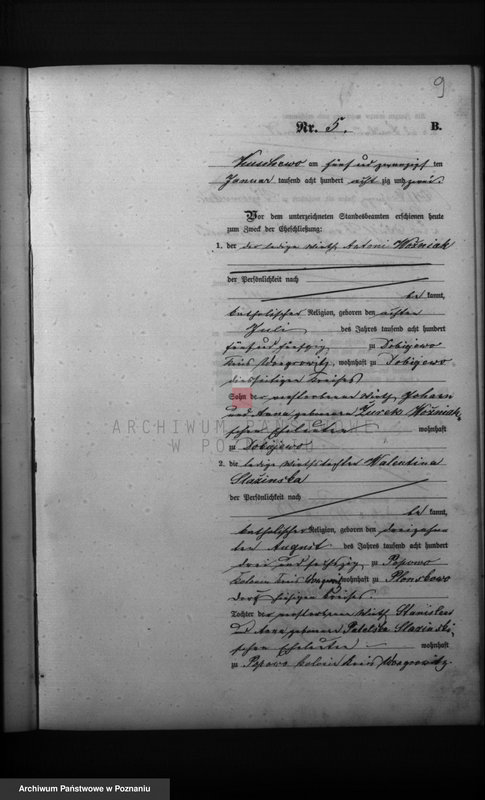 9
Nr. 5. B.
am fünf und zwanzigsten
Januar tausend acht hundert acht zig und zwei.
Vor dem unterzeichneten Standesbeamten erschienen heute
zum Zweck der Eheschließung:
1. der der ledige Wirth Antoni Woźniak
der Persönlichkeit nach
be kannt,
katholischer Religion, geboren den achten
Juli des Jahres tausend acht hundert
fünf und fünfzig zu
Kreis Wongrowitz, wohnhaft zu
diesseitigen Kreises
Sohn der verstorbenen Wirth Johann
und Anna geborenen Żurek Woźniak-
schen Eheleuten wohnhaft
zu
ARCHIWUM PAŃSTWOWE
W POZNANIU
2. die ledige Wirthstochter Walentina
Slazinska
der Persönlichkeit nach
be kannt,
katholischer Religion, geboren den dreizehn
ten August des Jahres tausend acht hundert
drei und sechszig, zu Popowo
Kolonie Kreis wohnhaft zu Plonskowo
Dorf hiesigen Kreises.
Tochter der Wirth Stanislaus
und Anna geborenen Slazinski-
schen Eheleuten wohnhaft
zu Popowo Kolonie Kreis Wongrowitz.
Archiwum Państwowe w Poznaniu